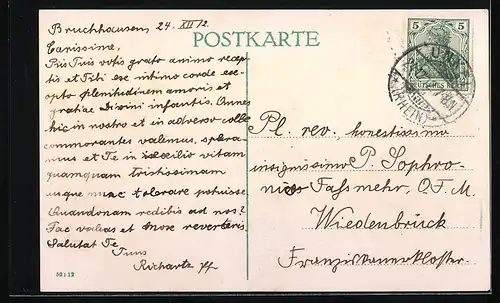 Bruchhausen, 24. XII 12
POSTKARTE
Carissime,
Piis Tuis votis grato animo recep-
tis et Titi ex intimo corde ex-
opto plenitudinem amoris et
gratiae Divini infantis. Omnes
hic in nostro et in adverso colle
commorantes valemus, spera-
mus et Te in exilio vitam
quamquam tristissimam
usque nunc tolerare potuisse.
Quandonam reditis ad nos?
Fac valeas et mox revertaris
Salutat Te
Tuus
Richartz
52:12
5 5
DEUTSCHES REICH
(RHEIN)
Pl. rev. honestissimo
insignissimo P. Sophro-
nius Fassmehr, O. F. M.
Wiedenbrück
Franziskanerkloster.